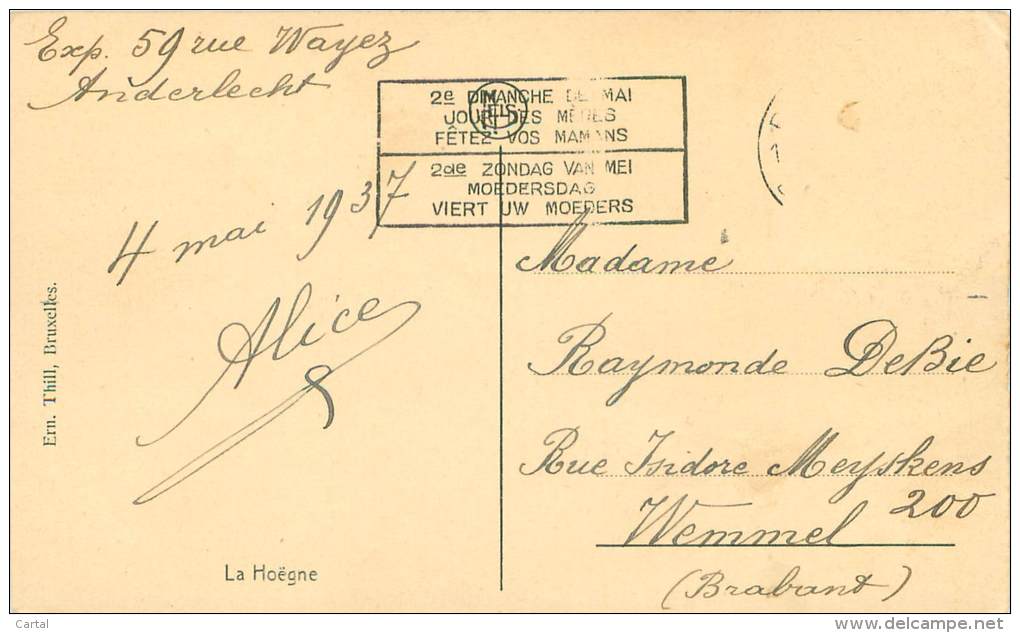 Exp. 59 rue Wayez
Anderlecht
2e DIMANCHE DE MAI
JOUR DES MÈRES
FÊTEZ VOS MAMANS
2de ZONDAG VAN MEI
MOEDERSDAG
VIERT UW MOEDERS
4 mai 1937
Alice
Madame
Raymonde DeBie
Rue Isidore Meyskens
200
Wemmel
(Brabant)
Ern. Thill, Bruxelles.
La Hoëgne
Cartal
www.delcampe.net